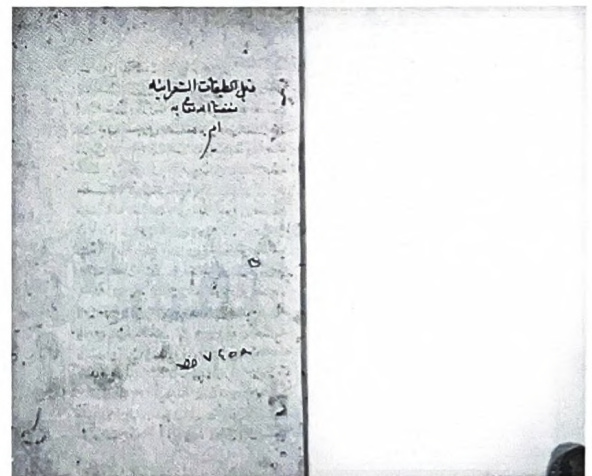 ذيل الطبقات الشعرانيه
نفعنا الله تعالى به
امين
٧٢٥٨